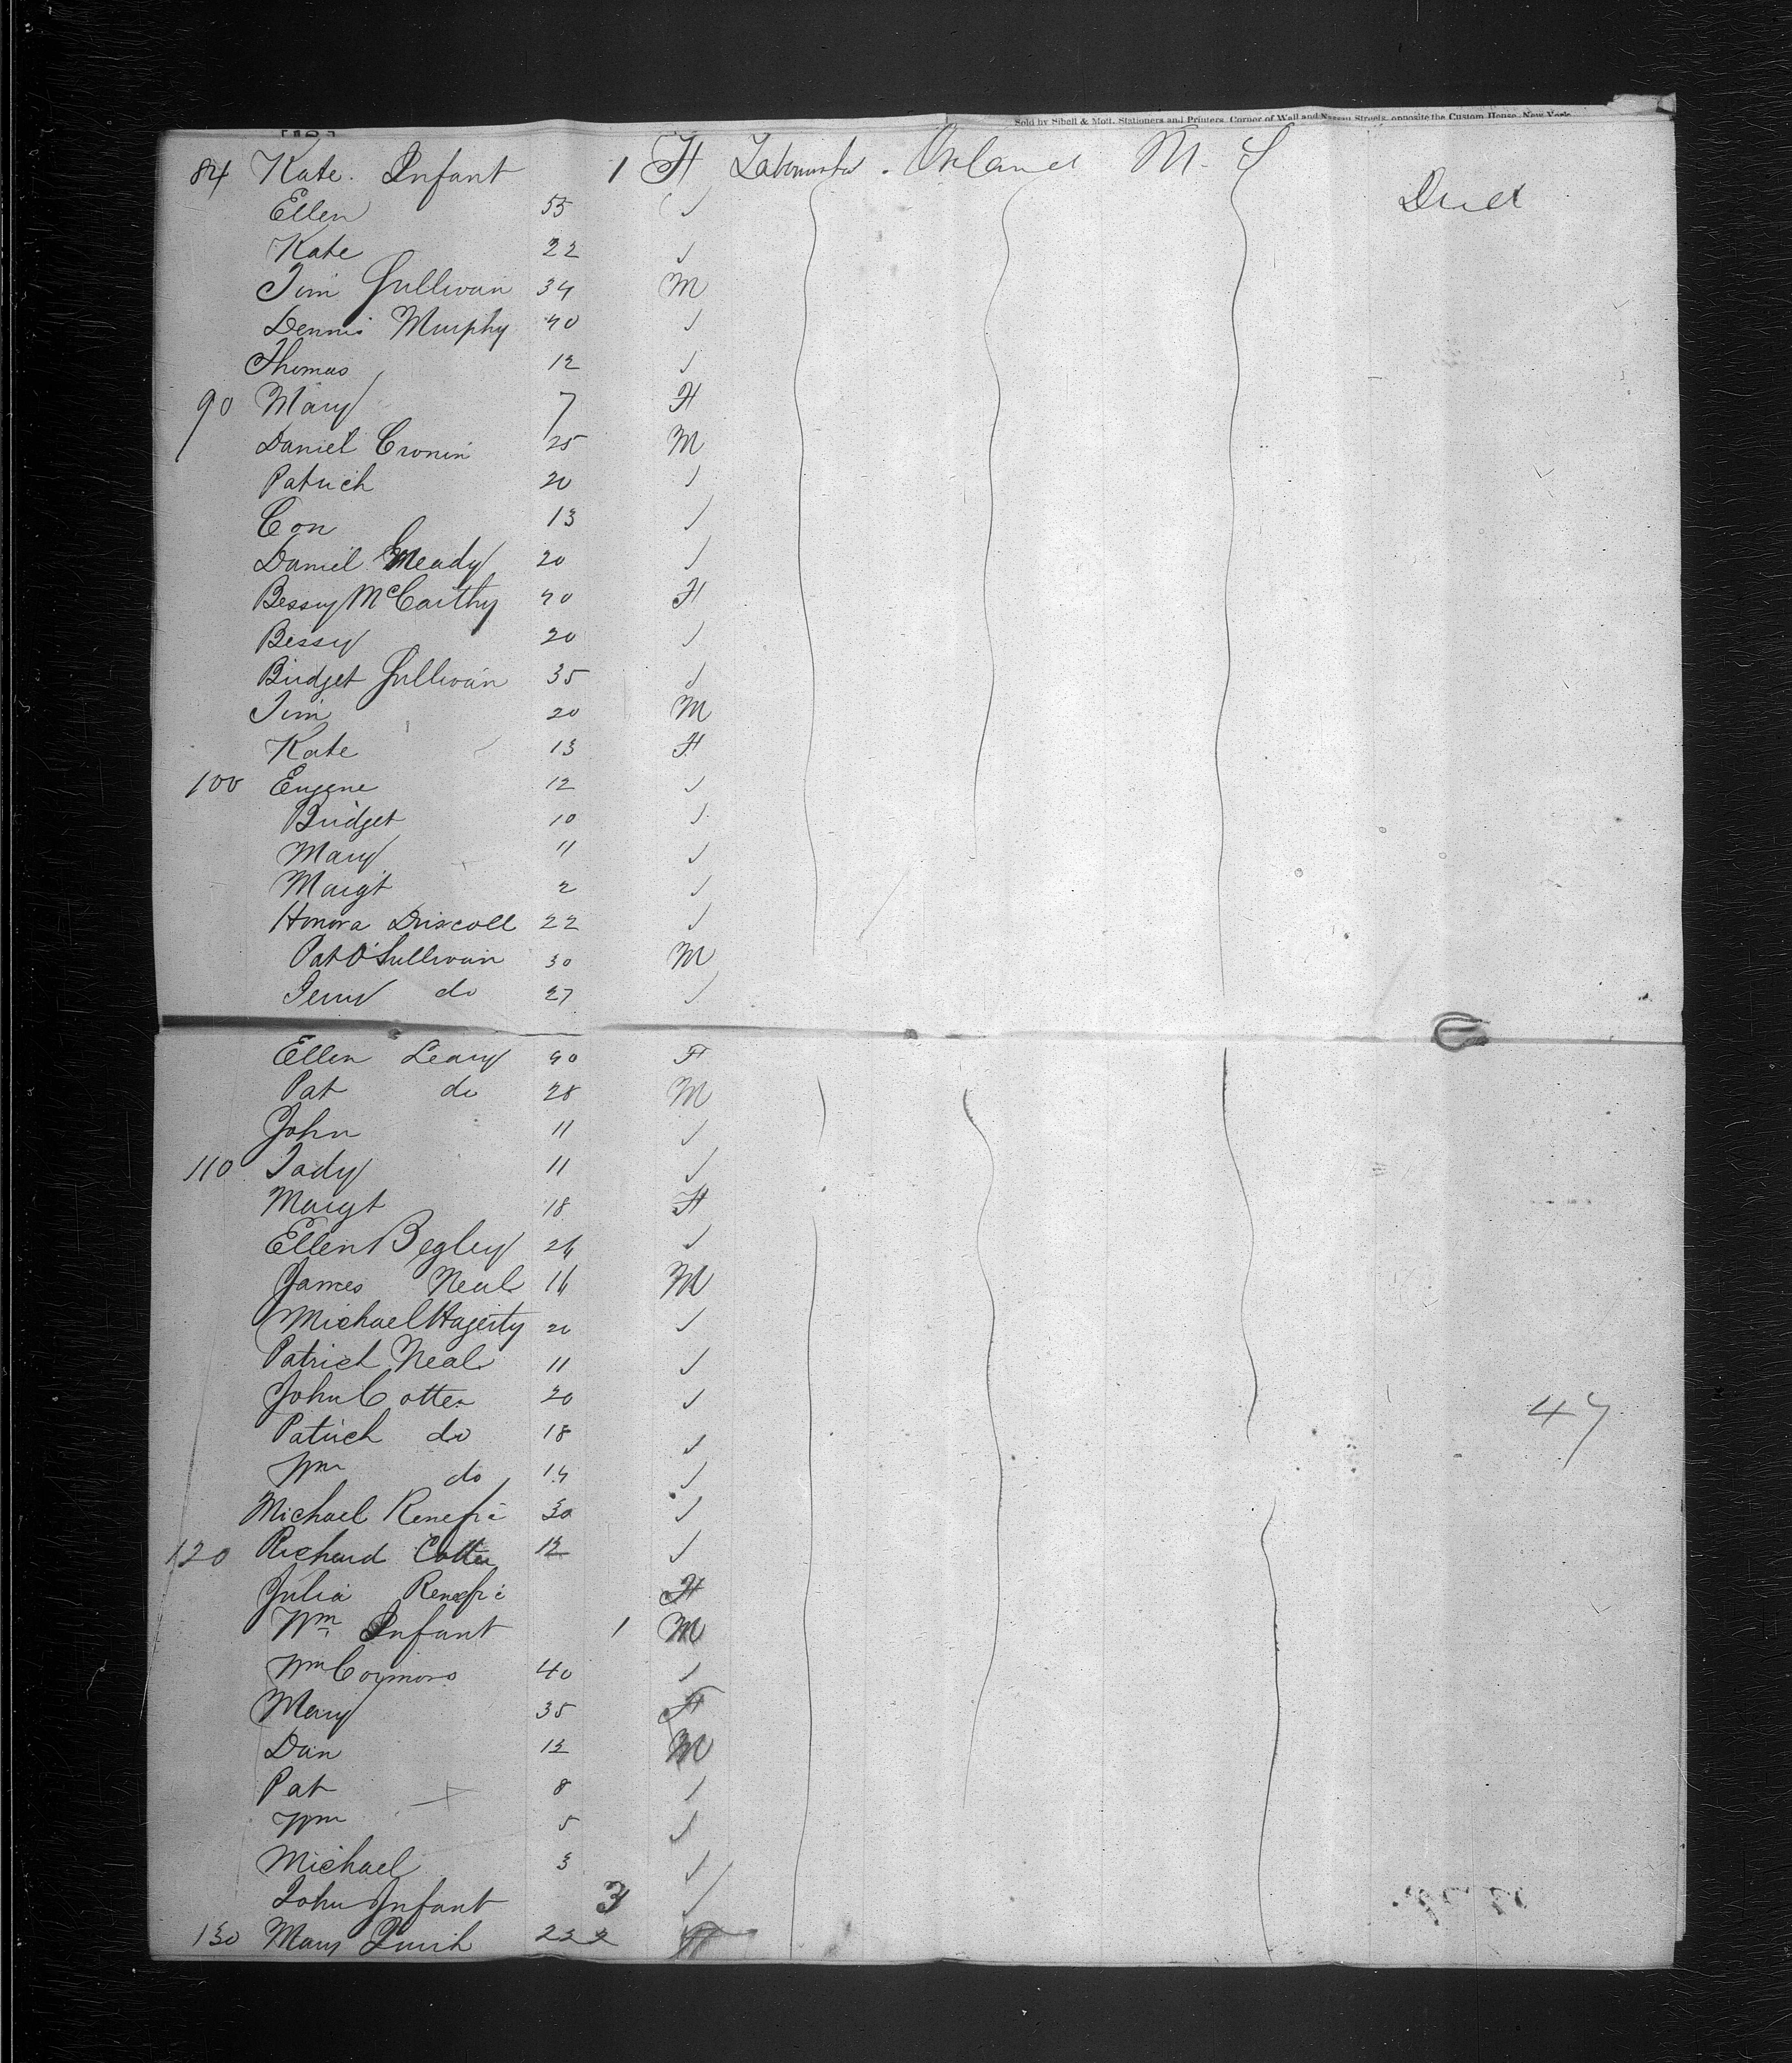 Sold by Sibell & Mott, Stationers and Printers, Corner of Wall and Nassau Streets, opposite the Custom House, New York
84 Kate. Infant 1 F Ireland
Ellen 55 ✓ Died
Kate 22 ✓
Tim Sullivan 34 M
Dennis Murphy 40 ✓
Thomas 12 ✓
90 Mary 7 F
Daniel Cronin 25 M
Patrick 20 ✓
Con 13 ✓
Daniel Meady 20 ✓
Bessy McCarthy 40 F
Bessy 20 ✓
Bridget Sullivan 35 ✓
Tim 20 M
Kate 13 F
100 Eugene 12 ✓
Bridget 10 ✓
Mary 11 ✓
Margt 2 ✓
Honora Driscoll 22 ✓
Pat O'Sullivan 30 M
Jerry do 27 ✓
Ellen Leary 40 F
Pat do 28 M
John 11 ✓
110 Tady 11 ✓
Margt 18 F
Ellen Begley 24 ✓
James Neal 16 M
Michael Hagerty 20 ✓
Patrick Neal 11 ✓
John Cotter 20 ✓
47
Patrick do 18 ✓
Wm do 14 ✓
Michael 30 ✓
120 Richard Cotter 12 ✓
Julia F
Wm Infant 1 M
Wm Connors 40 ✓
Mary 35 F
Dan 12 M
Pat 8 ✓
Wm 5 ✓
Michael 3 ✓
John Infant 3 ✓
130 Mary 22 2 F